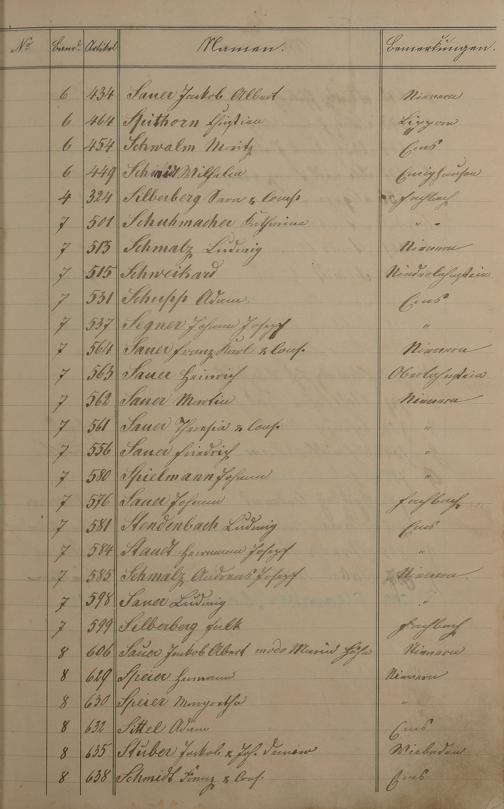 No. Band. Artikel Namen. Bemerkungen.
6 434 Sauer Jackob Albert Nievern
6 464 Spithorn
6 454 Schwalm Moritz Ems
6 449 Schmidt Wilhelm
4 324 Silberberg Sara & Cons. Fachbach
7 501 Schuhmacher Katharina " "
7 513 Schmalz Ludwig Nievern
7 515 Schweikard Niederlahnstein
7 531 Schupp Adam. Ems
7 537 Segner Johann Josepf "
7 564 Sauer Franz Karl & Cons. Nievern
7 563 Sauer Heinrich Oberlahnstein
7 562 Sauer Martin Nievern
7 561 Sauer Theresia & Cons. "
7 556 Sauer Friedrich "
7 580 Spielmann Johann "
7 576 Sauer Johann Fachbach
7 581 Stendenbach Ludwig Ems
7 584 Staudt Hermann Josepf "
7 585 Schmalz Andreas Josepf Nievern.
7 598 Sauer Ludwig "
7 599 Silberberg Falk Fachbach
8 606 Sauer Jackob Albert modo Nievern
8 629 Speier Hermann Nievern
8 630 Speier Margretha "
8 632 Sittel Adam Ems
8 635 Stuber Jackob & Joh. Wiesbaden
8 638 Schmidt Franz & Cons. Ems